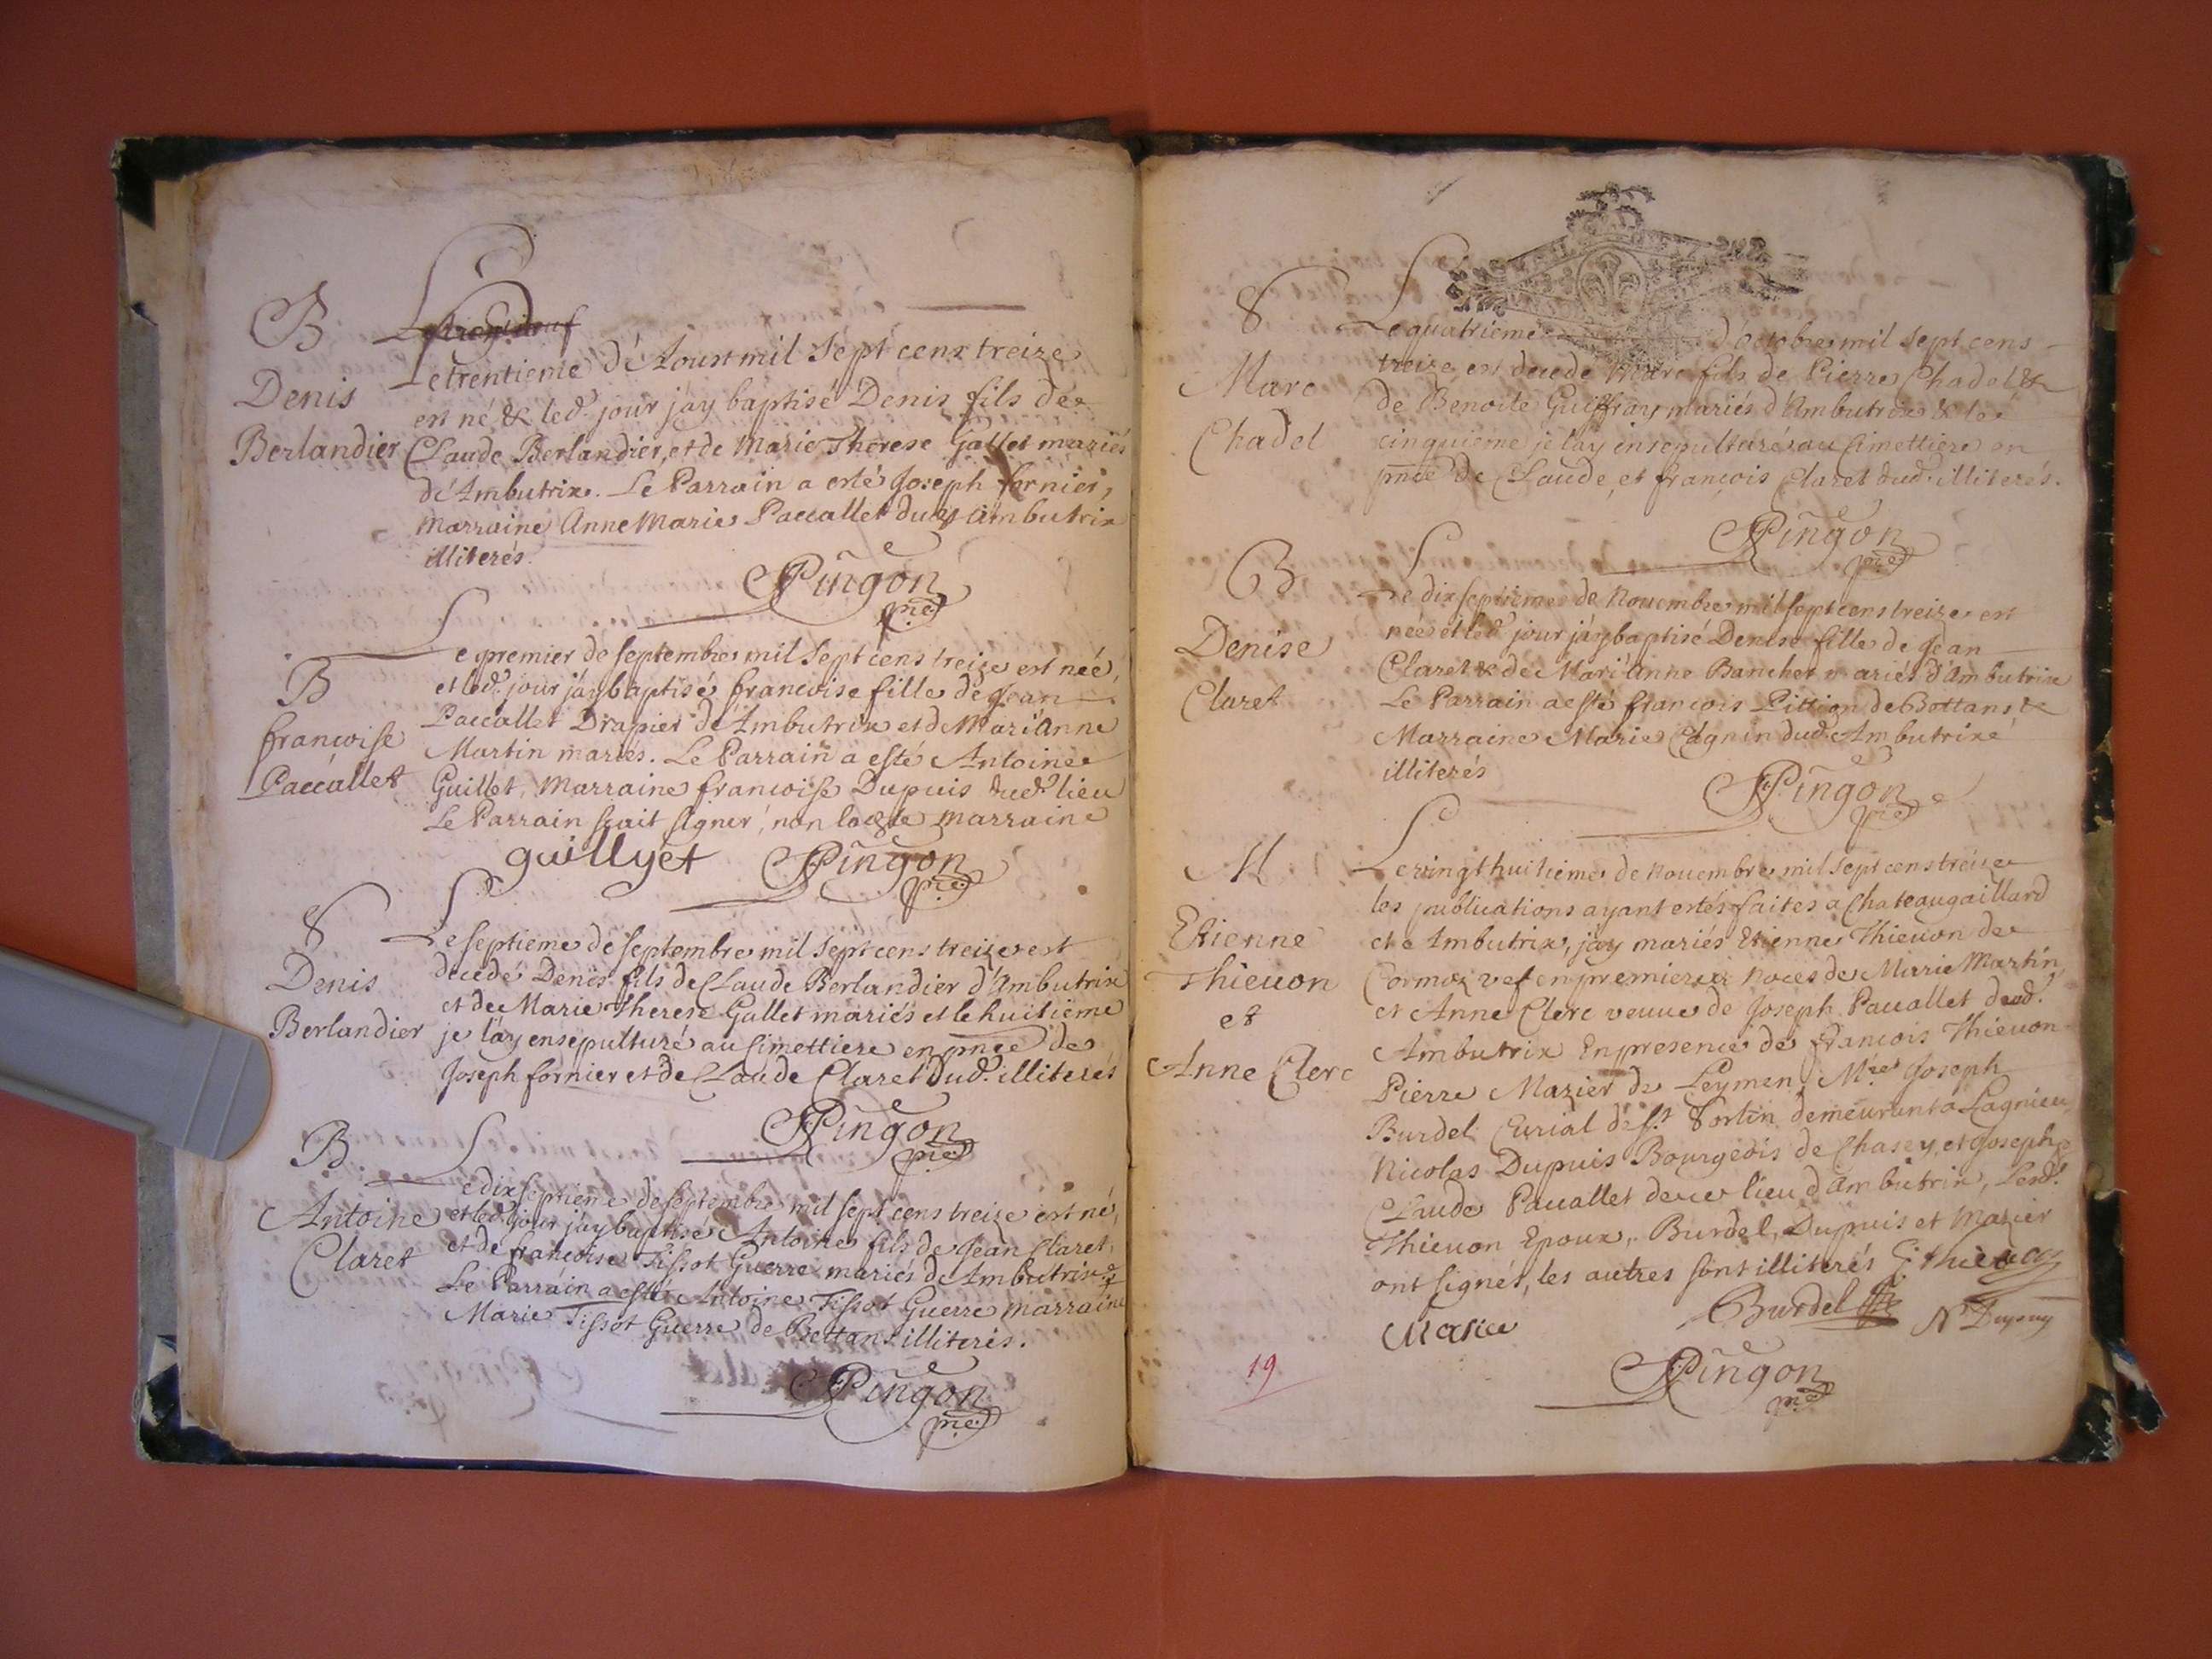 B
Denis
Berlandier
Le trentieme d'Aoust mil sept cens treize
est né & led. jour jay baptisé Denis fils de
Claude Berlandier, et de Marie Therese Gallet mariés
d'Ambutrix. Le Parrain a esté Joseph fornier,
marraine Anne Marie Paccallet dud. Ambutrix
illiterés.
Pingon
pre.
B
francoise
Paccallet
Le premier de septembre mil sept cens treize est née,
et led. jour jay baptisé francoise fille de Jean
Paccallet Drapier d'Ambutrix et de Mari'Anne
Martin mariés. Le Parrain a esté Antoine
Guillet, Marraine francoise Dupuis dud. lieu
Le Parrain scait signer, non lad. marraine
guillyet Pingon
pre.
S
Denis
Berlandier
Le septieme de septembre mil sept cens treize est
decedé Denis fils de Claude Berlandier d'Ambutrix
et de Marie Therese Gallet mariés et le huitieme
je l'ay ensepulturé au simettiere en pnce de
Joseph fornier et de Claude Claret dud. illiterés
Pingon
pre.
B
Antoine
Claret
Le dixseptieme de septembre mil sept cens treize est né,
et led. jour jay baptisé Antoine fils de Jean Claret,
et de francoise Tissot Guerre mariés d'Ambutrix
Le Parrain a esté Antoine Tissot Guerre marraine
Marie Tissot Guerre de Bettans illiterés.
Pingon
pre.
S
Marc
Chadel
Le quatrieme d'octobre mil sept cens
treize, est decedé Marc fils de Pierre Chadel &
de Benoite Guiffray mariés d'Ambutrix & le
cinquieme je l'ay ensepulturé au simettiere en
pnce de Claude, et francois Claret dud. illiterés.
Pingon
pre.
B
Denise
Claret
Le dixseptieme de Novembre mil sept cens treize est
née et led. jour jay baptisé Denise fille de Jean
Claret & de Mari'Anne Banchet mariés d'Ambutrix
Le Parrain a esté francois Pittion de Bottans &
Marraine Marie Cagnin dud. Ambutrix
illiterés
Pingon
pre.
M
Etienne
Thievon
et
Anne Clerc
Le vingt huitieme de Novembre mil sept cens treize
les publications ayant estés faites a Chateaugaillard
et a Ambutrix, jay mariés Etienne Thievon de
Cormoz vef en premieres noces de Marie Martin,
et Anne Clerc veuve de Joseph Paccallet dud.
Ambutrix En presence de francois Thievon
Pierre Mazier de Leymen, Mre. Joseph
Burdel Curial de St. Sorlin demeurant a Lagnieu,
Nicolas Dupuis Bourgeois de Chasey, et Joseph
Claude Paccallet de ce lieu d'ambutrix, Lesd.
Thievon Epoux, Burdel, Dupuis et Mazier
ont signés, les autres sont illiterés E. thievon
Burdel N Dupuy
Masier
19
Pingon
pre.